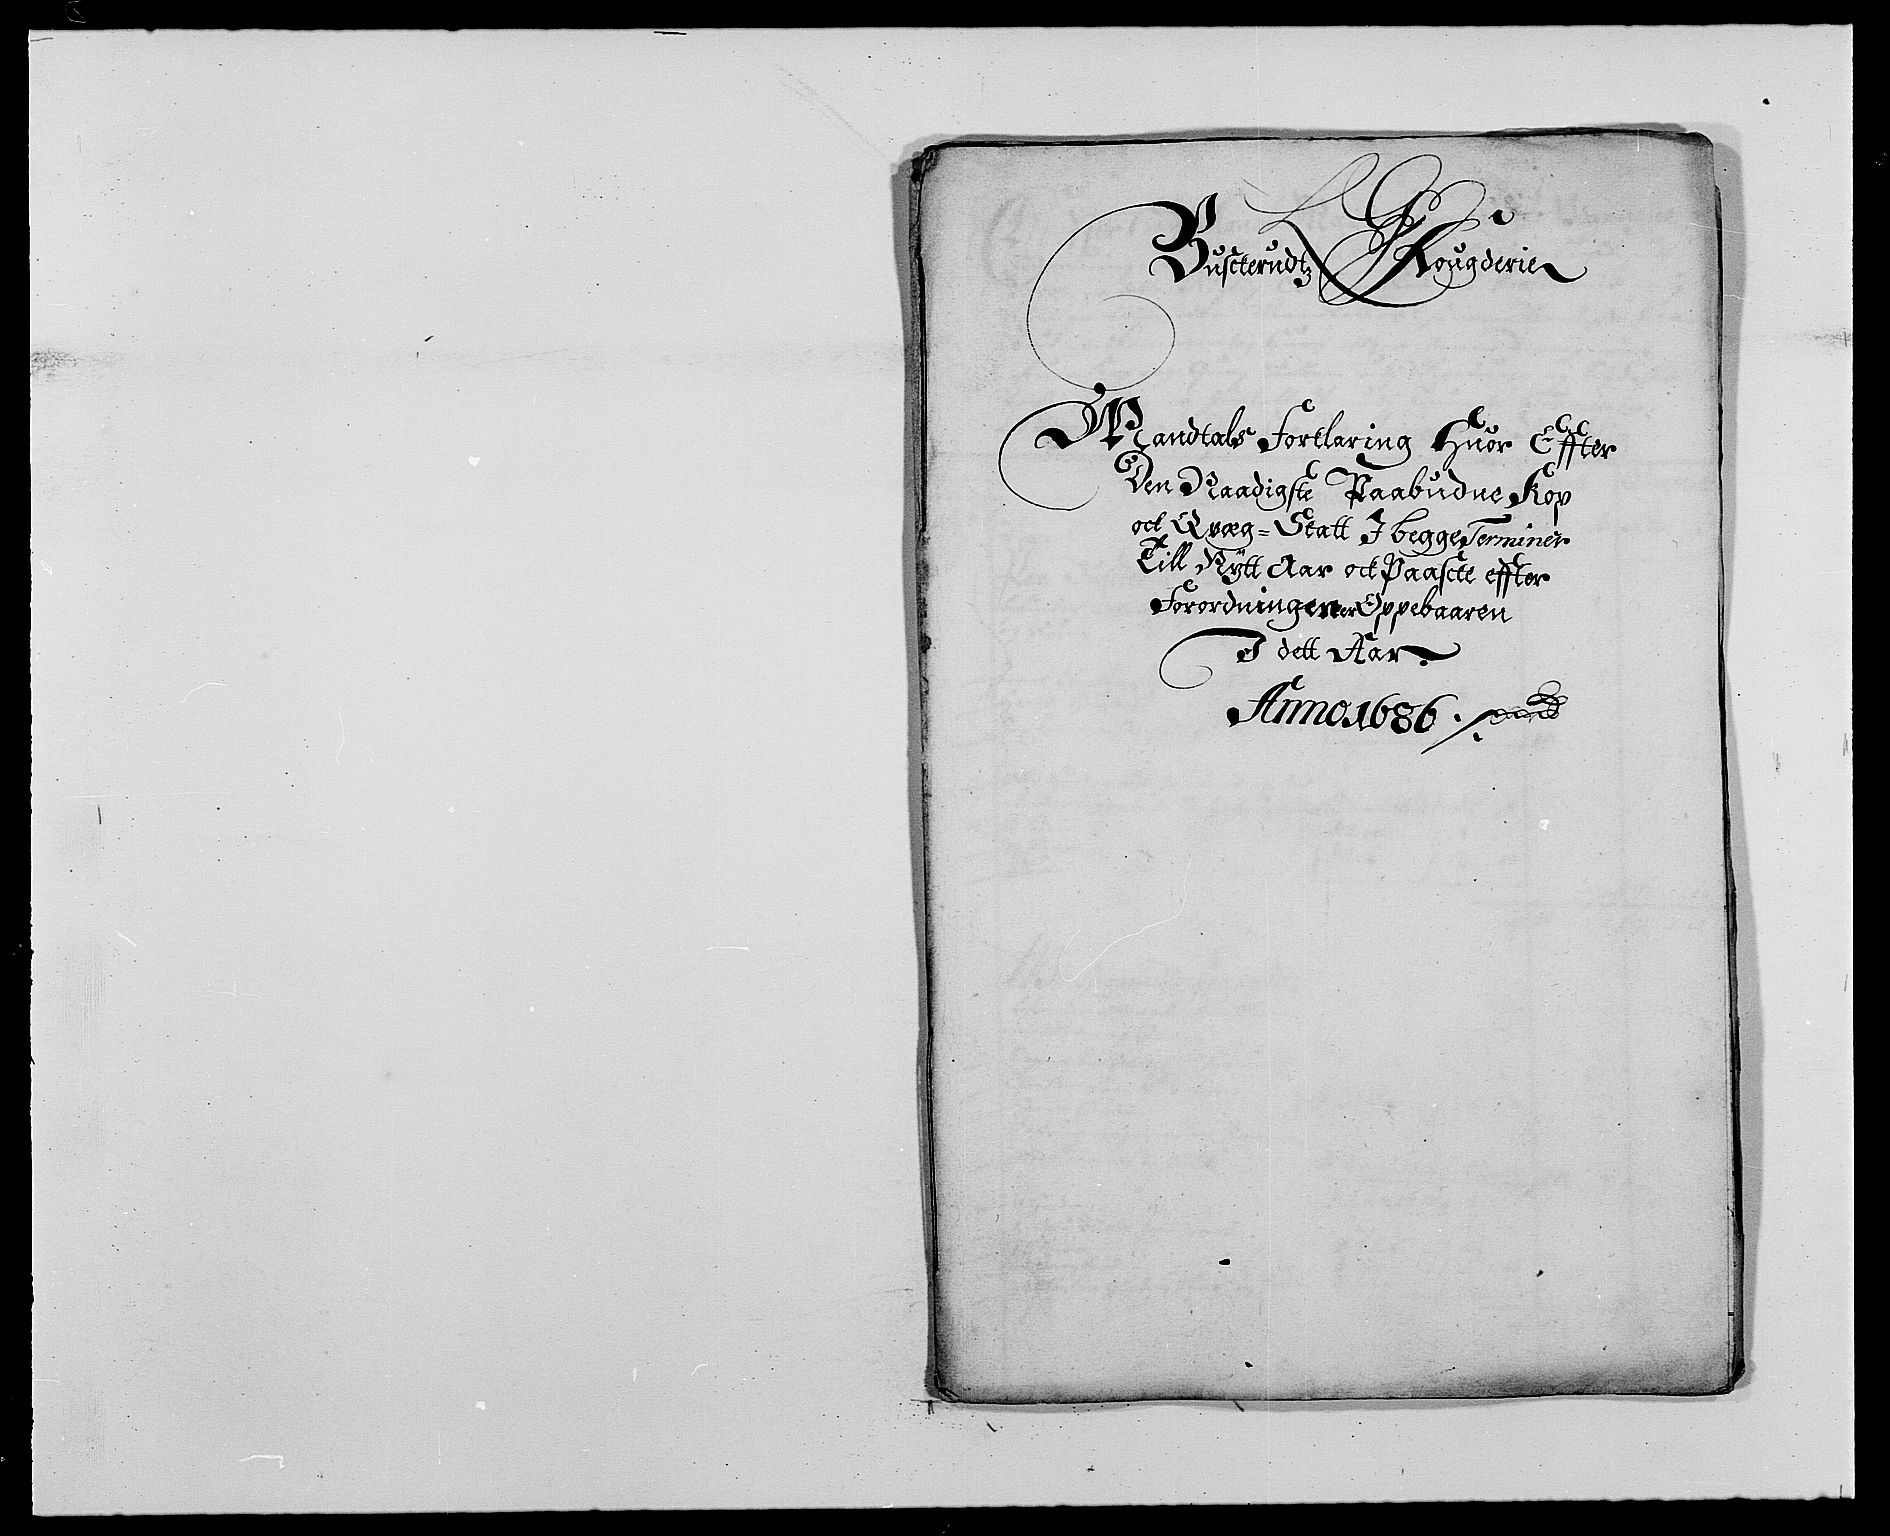 Busckerudtz Fougderie
Mandtals Forklaring Huor Effter
Den Naadigste Paabudne Kop
ock Qvæg=Skatt I begge Terminer
Till Nÿtt Aar ock Paascke effter
Forordningen er Oppebaaren
I dett Aar
Anno 1686.